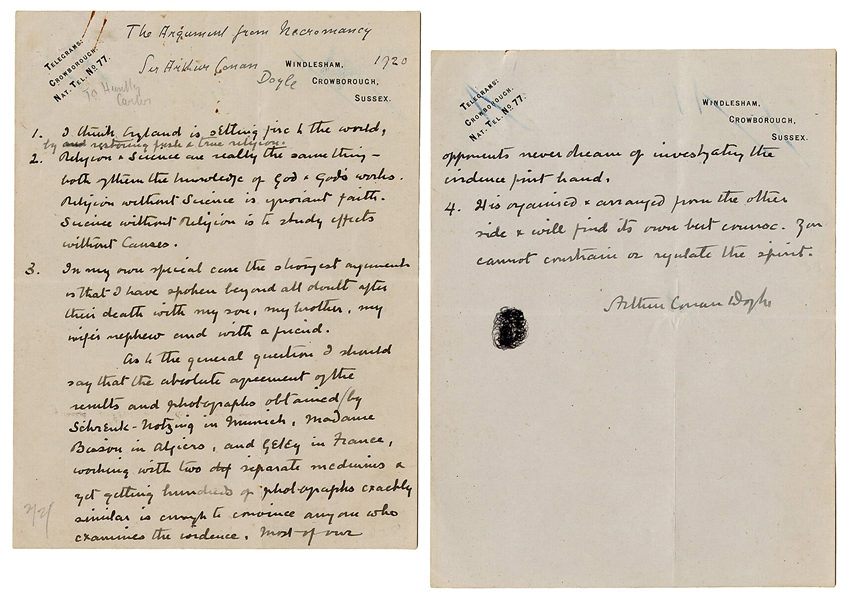 The Argument from Necromancy
Sir Arthur Conan
Doyle
1920
TELEGRAMS:
CROWBOROUGH.
NAT. TEL. NO 77.
To Huntly
Carter
WINDLESHAM,
CROWBOROUGH,
SUSSEX.
1. I think England is setting fire to the world,
by and restoring just & true religion.
2. Religion & Science are really the same thing –
both of them the knowledge of God & God's works.
Religion without Science is ignorant faith.
Science without Religion is to study effects
without Causes.
3. In my own special case the strongest argument
is that I have spoken beyond all doubt after
their death with my son, my brother, my
wife's nephew and with a friend.
As to the general question I should
say that the absolute agreement of the
results and photographs obtained by
Schrenk-Notzing in Munich, Madame
Bisson in Algiers, and Geley in France,
working with two separate mediums &
yet getting hundreds of photographs exactly
similar is enough to convince anyone who
examines the evidence. Most of our
TELEGRAMS:
CROWBOROUGH.
NAT. TEL. NO 77.
WINDLESHAM,
CROWBOROUGH,
SUSSEX.
opponents never dream of investigating the
evidence first hand.
4. It is organised & arranged from the other
side & will find its own best course. You
cannot constrain or regulate the spirit.
Arthur Conan Doyle